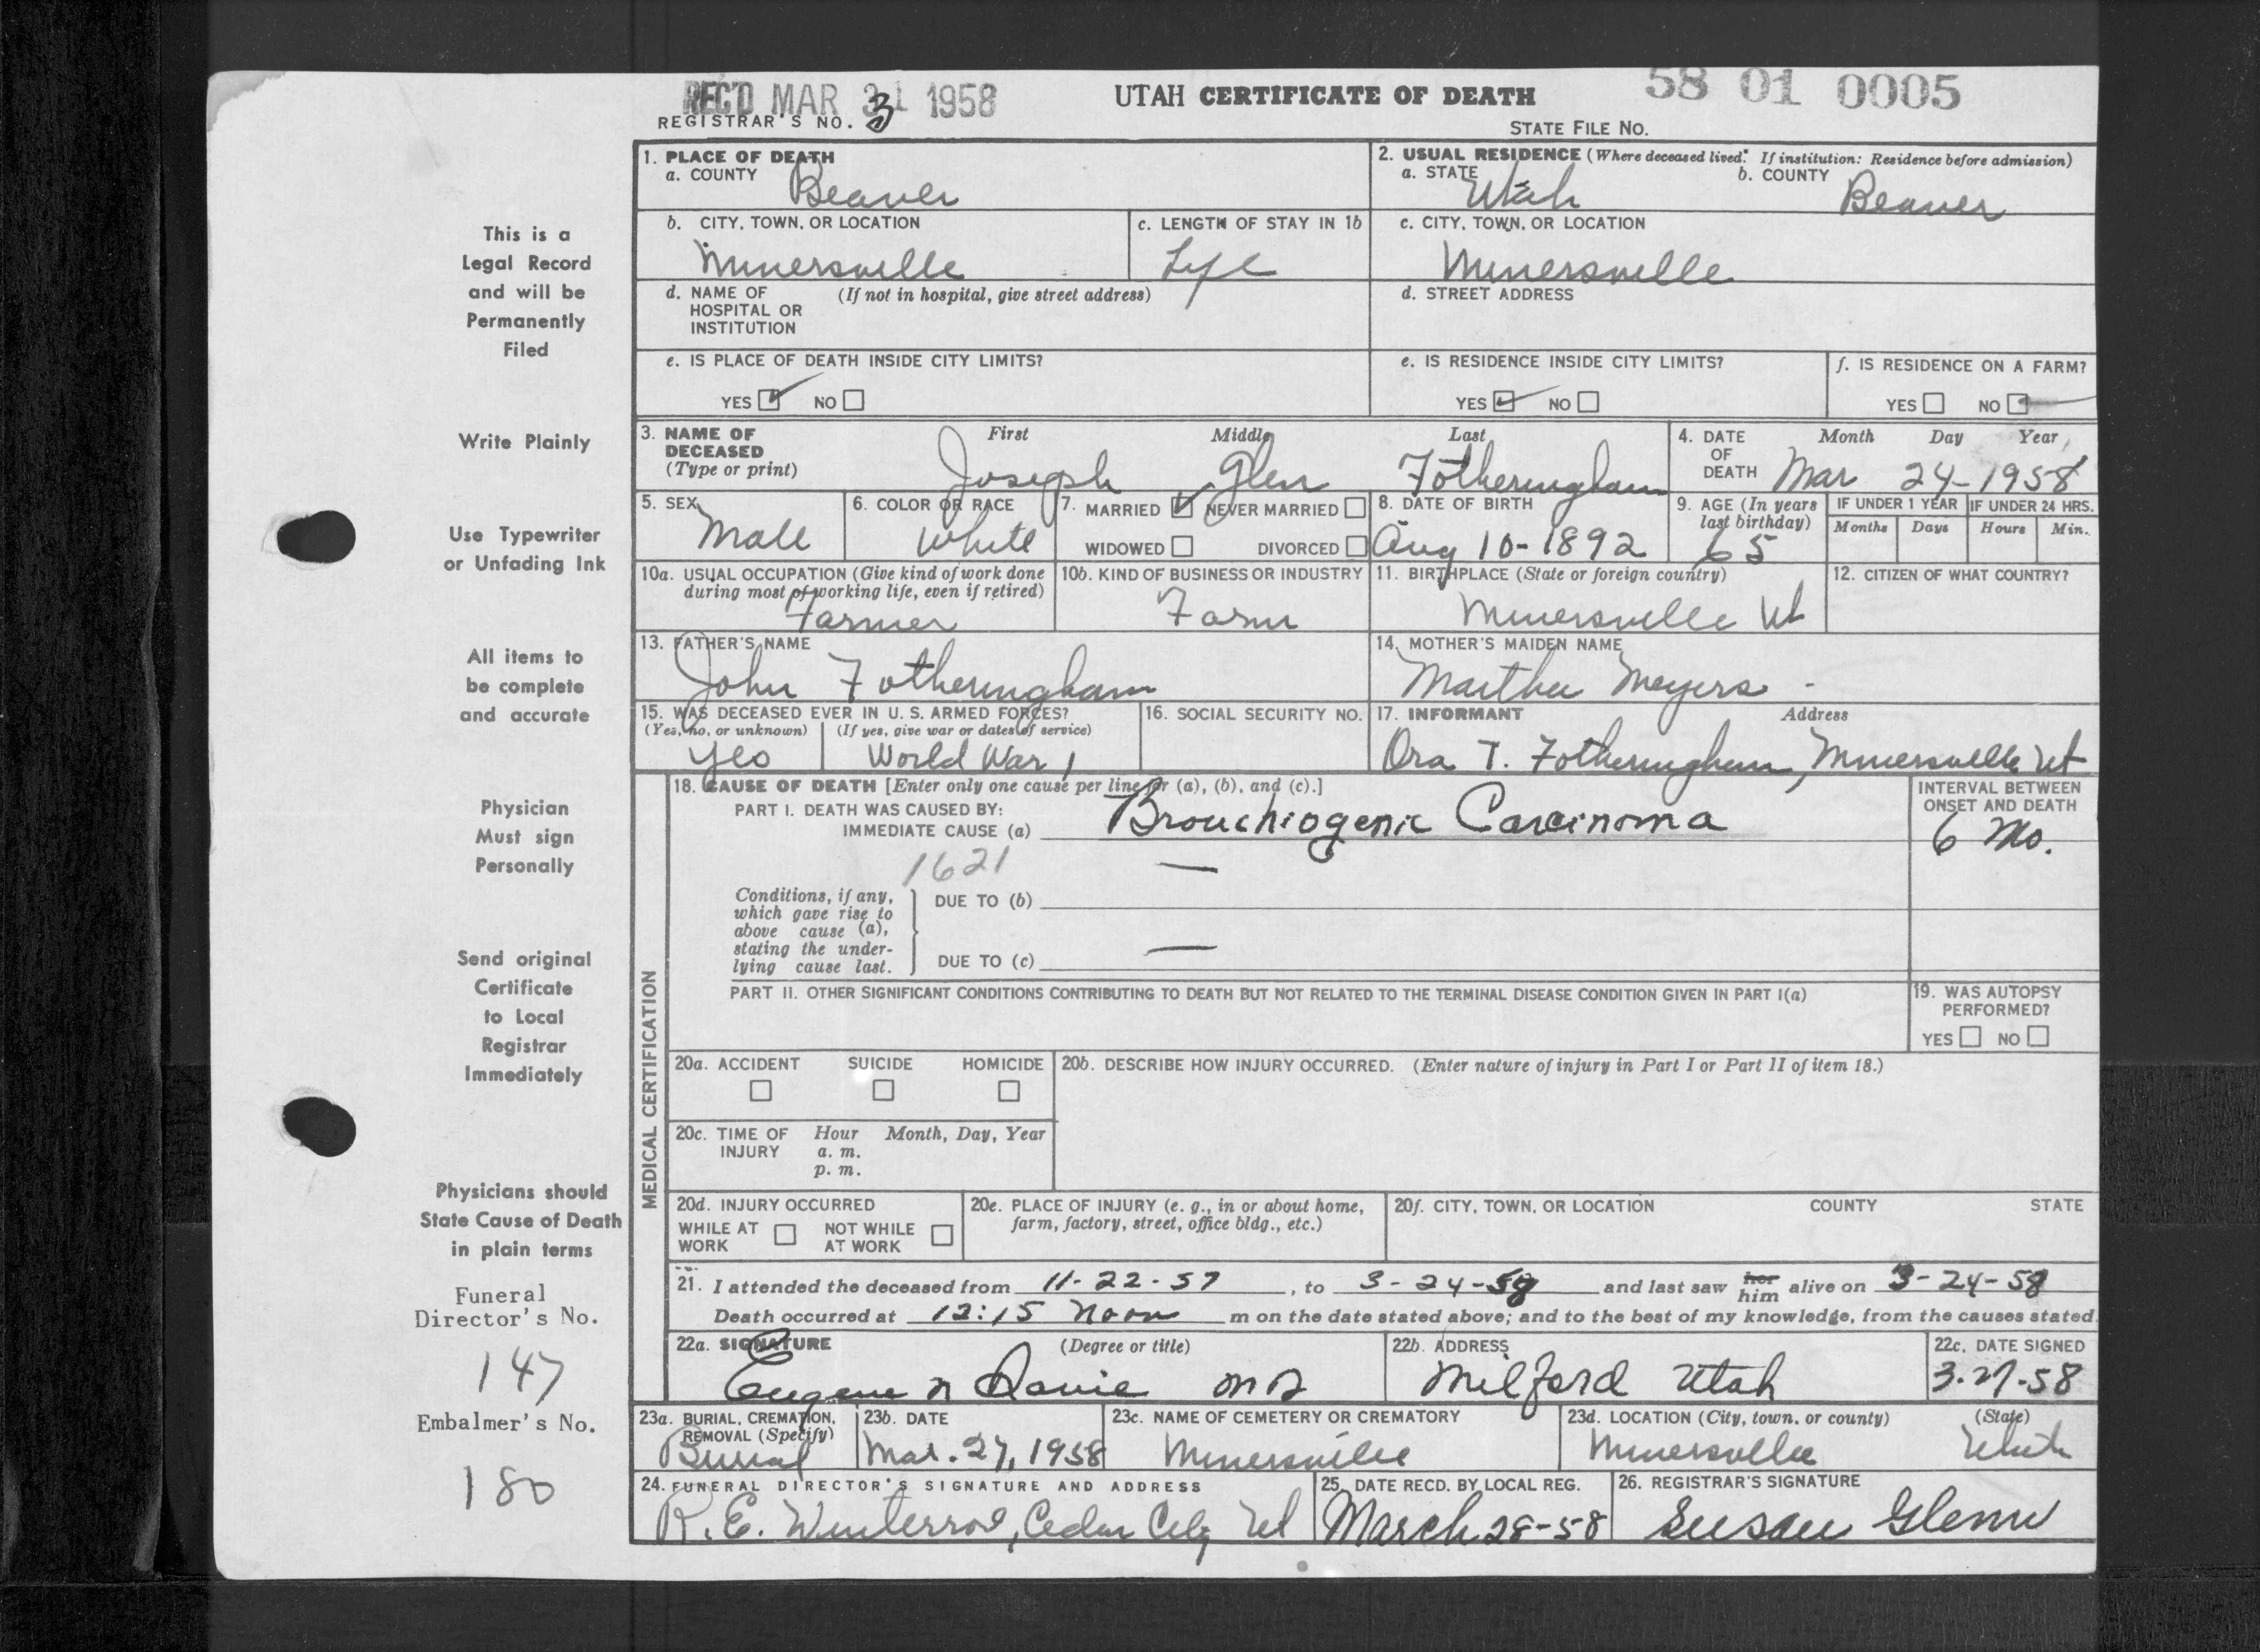 REC'D MAR 31 1958
UTAH CERTIFICATE OF DEATH
58 01 0005
REGISTRAR'S NO. 3
STATE FILE NO.
1. PLACE OF DEATH
a. COUNTY Beaver
2. USUAL RESIDENCE (Where deceased lived. If institution: Residence before admission)
a. STATE Utah b. COUNTY Beaver
b. CITY, TOWN, OR LOCATION
Minersville
c. LENGTH OF STAY IN 1b
Life
c. CITY, TOWN, OR LOCATION
Minersville
d. NAME OF (If not in hospital, give street address)
HOSPITAL OR
INSTITUTION
d. STREET ADDRESS
e. IS PLACE OF DEATH INSIDE CITY LIMITS?
YES NO
e. IS RESIDENCE INSIDE CITY LIMITS?
YES NO
f. IS RESIDENCE ON A FARM?
YES NO
3. NAME OF DECEASED (Type or print)
First Middle Last
Joseph Glen Fotheringham
4. DATE OF DEATH
Month Day Year
Mar 24-1958
5. SEX
Male
6. COLOR OR RACE
White
7. MARRIED NEVER MARRIED
WIDOWED DIVORCED
8. DATE OF BIRTH
Aug 10-1892
9. AGE (In years last birthday)
65
IF UNDER 1 YEAR
Months Days
IF UNDER 24 HRS.
Hours Min.
10a. USUAL OCCUPATION (Give kind of work done
during most of working life, even if retired)
Farmer
10b. KIND OF BUSINESS OR INDUSTRY
Farm
11. BIRTHPLACE (State or foreign country)
Minersville Ut
12. CITIZEN OF WHAT COUNTRY?
13. FATHER'S NAME
John Fotheringham
14. MOTHER'S MAIDEN NAME
Martha Meyers
15. WAS DECEASED EVER IN U. S. ARMED FORCES?
(Yes, no, or unknown) (If yes, give war or dates of service)
Yes World War 1
16. SOCIAL SECURITY NO.
17. INFORMANT Address
Ora T. Fotheringham, Minersville Ut
MEDICAL CERTIFICATION
18. CAUSE OF DEATH [Enter only one cause per line for (a), (b), and (c).]
PART I. DEATH WAS CAUSED BY:
IMMEDIATE CAUSE (a) Bronchiogenic Carcinoma
INTERVAL BETWEEN
ONSET AND DEATH
6 Mo.
1621
—
Conditions, if any,
which gave rise to
above cause (a),
stating the under-
lying cause last.
DUE TO (b)
—
DUE TO (c)
PART II. OTHER SIGNIFICANT CONDITIONS CONTRIBUTING TO DEATH BUT NOT RELATED TO THE TERMINAL DISEASE CONDITION GIVEN IN PART I(a)
19. WAS AUTOPSY
PERFORMED?
YES NO
20a. ACCIDENT SUICIDE HOMICIDE
20b. DESCRIBE HOW INJURY OCCURRED. (Enter nature of injury in Part I or Part II of item 18.)
20c. TIME OF INJURY
Hour Month, Day, Year
a. m.
p. m.
20d. INJURY OCCURRED
WHILE AT WORK NOT WHILE AT WORK
20e. PLACE OF INJURY (e. g., in or about home,
farm, factory, street, office bldg., etc.)
20f. CITY, TOWN, OR LOCATION COUNTY STATE
21. I attended the deceased from 11-22-57, to 3-24-58 and last saw her him alive on 3-24-58
Death occurred at 12:15 Noon m on the date stated above; and to the best of my knowledge, from the causes stated.
22a. SIGNATURE (Degree or title)
Eugene N Davie MD
22b. ADDRESS
Milford Utah
22c. DATE SIGNED
3-27-58
23a. BURIAL, CREMATION,
REMOVAL (Specify)
Burial
23b. DATE
Mar. 27, 1958
23c. NAME OF CEMETERY OR CREMATORY
Minersville
23d. LOCATION (City, town, or county) (State)
Minersville Utah
24. FUNERAL DIRECTOR'S SIGNATURE AND ADDRESS
R. E. Winterrose, Cedar City Ut
25. DATE RECD. BY LOCAL REG.
March 28-58
26. REGISTRAR'S SIGNATURE
Susan Glenn
This is a
Legal Record
and will be
Permanently
Filed
Write Plainly
Use Typewriter
or Unfading Ink
All items to
be complete
and accurate
Physician
Must sign
Personally
Send original
Certificate
to Local
Registrar
Immediately
Physicians should
State Cause of Death
in plain terms
Funeral
Director's No.
147
Embalmer's No.
180